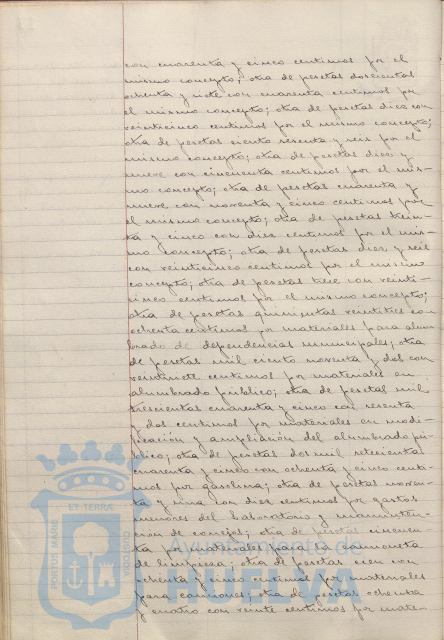 con cuarenta y cinco centimos por el
mismo concepto; otra de pesetas doscientas
ochenta y siete con cuarenta centimos por
el mismo concepto; otra de pesetas diez con
veinticinco centimos por el mismo concepto;
otra de pesetas ciento sesenta y seis por el
mismo concepto; otra de pesetas diez y
nueve con cincuenta centimos por el mis-
mo concepto; otra de pesetas cuarenta y
nueve con noventa y cinco centimos por
el mismo concepto; otra de pesetas trein-
ta y cinco con diez centimos por el mis-
mo concepto; otra de pesetas diez y seis
con veinticinco centimos por el mismo
concepto; otra de pesetas trece con veinti-
cinco centimos por el mismo concepto;
otra de pesetas quinientas veintitres con
ochenta centimos por materiales para alum-
brado de dependencias municipales; otra
de pesetas mil ciento noventa y dos con
veintisiete centimos por materiales en
alumbrado público; otra de pesetas mil
trescientas cuarenta y cinco con sesenta
y dos centimos por materiales en modi-
ficación y ampliación del alumbrado pú-
blico; otra de pesetas dos mil setecientas
cuarenta y cinco con ochenta y cinco centi-
mos por gasolina; otra de pesetas noven-
ta y una con diez centimos por gastos
menores del Laboratorio y manuten-
ción de conejos; otra de pesetas cincuen-
ta por materiales para la camioneta
de limpieza; otra de pesetas cien con
ochenta y cinco centimos por materiales
para camiones; otra de pesetas ochenta
y cuatro con veinte centimos por mate-
PORTUS MARIS
ET TERRÆ
CUSTODIA
Ayuntamiento de
HUELVA